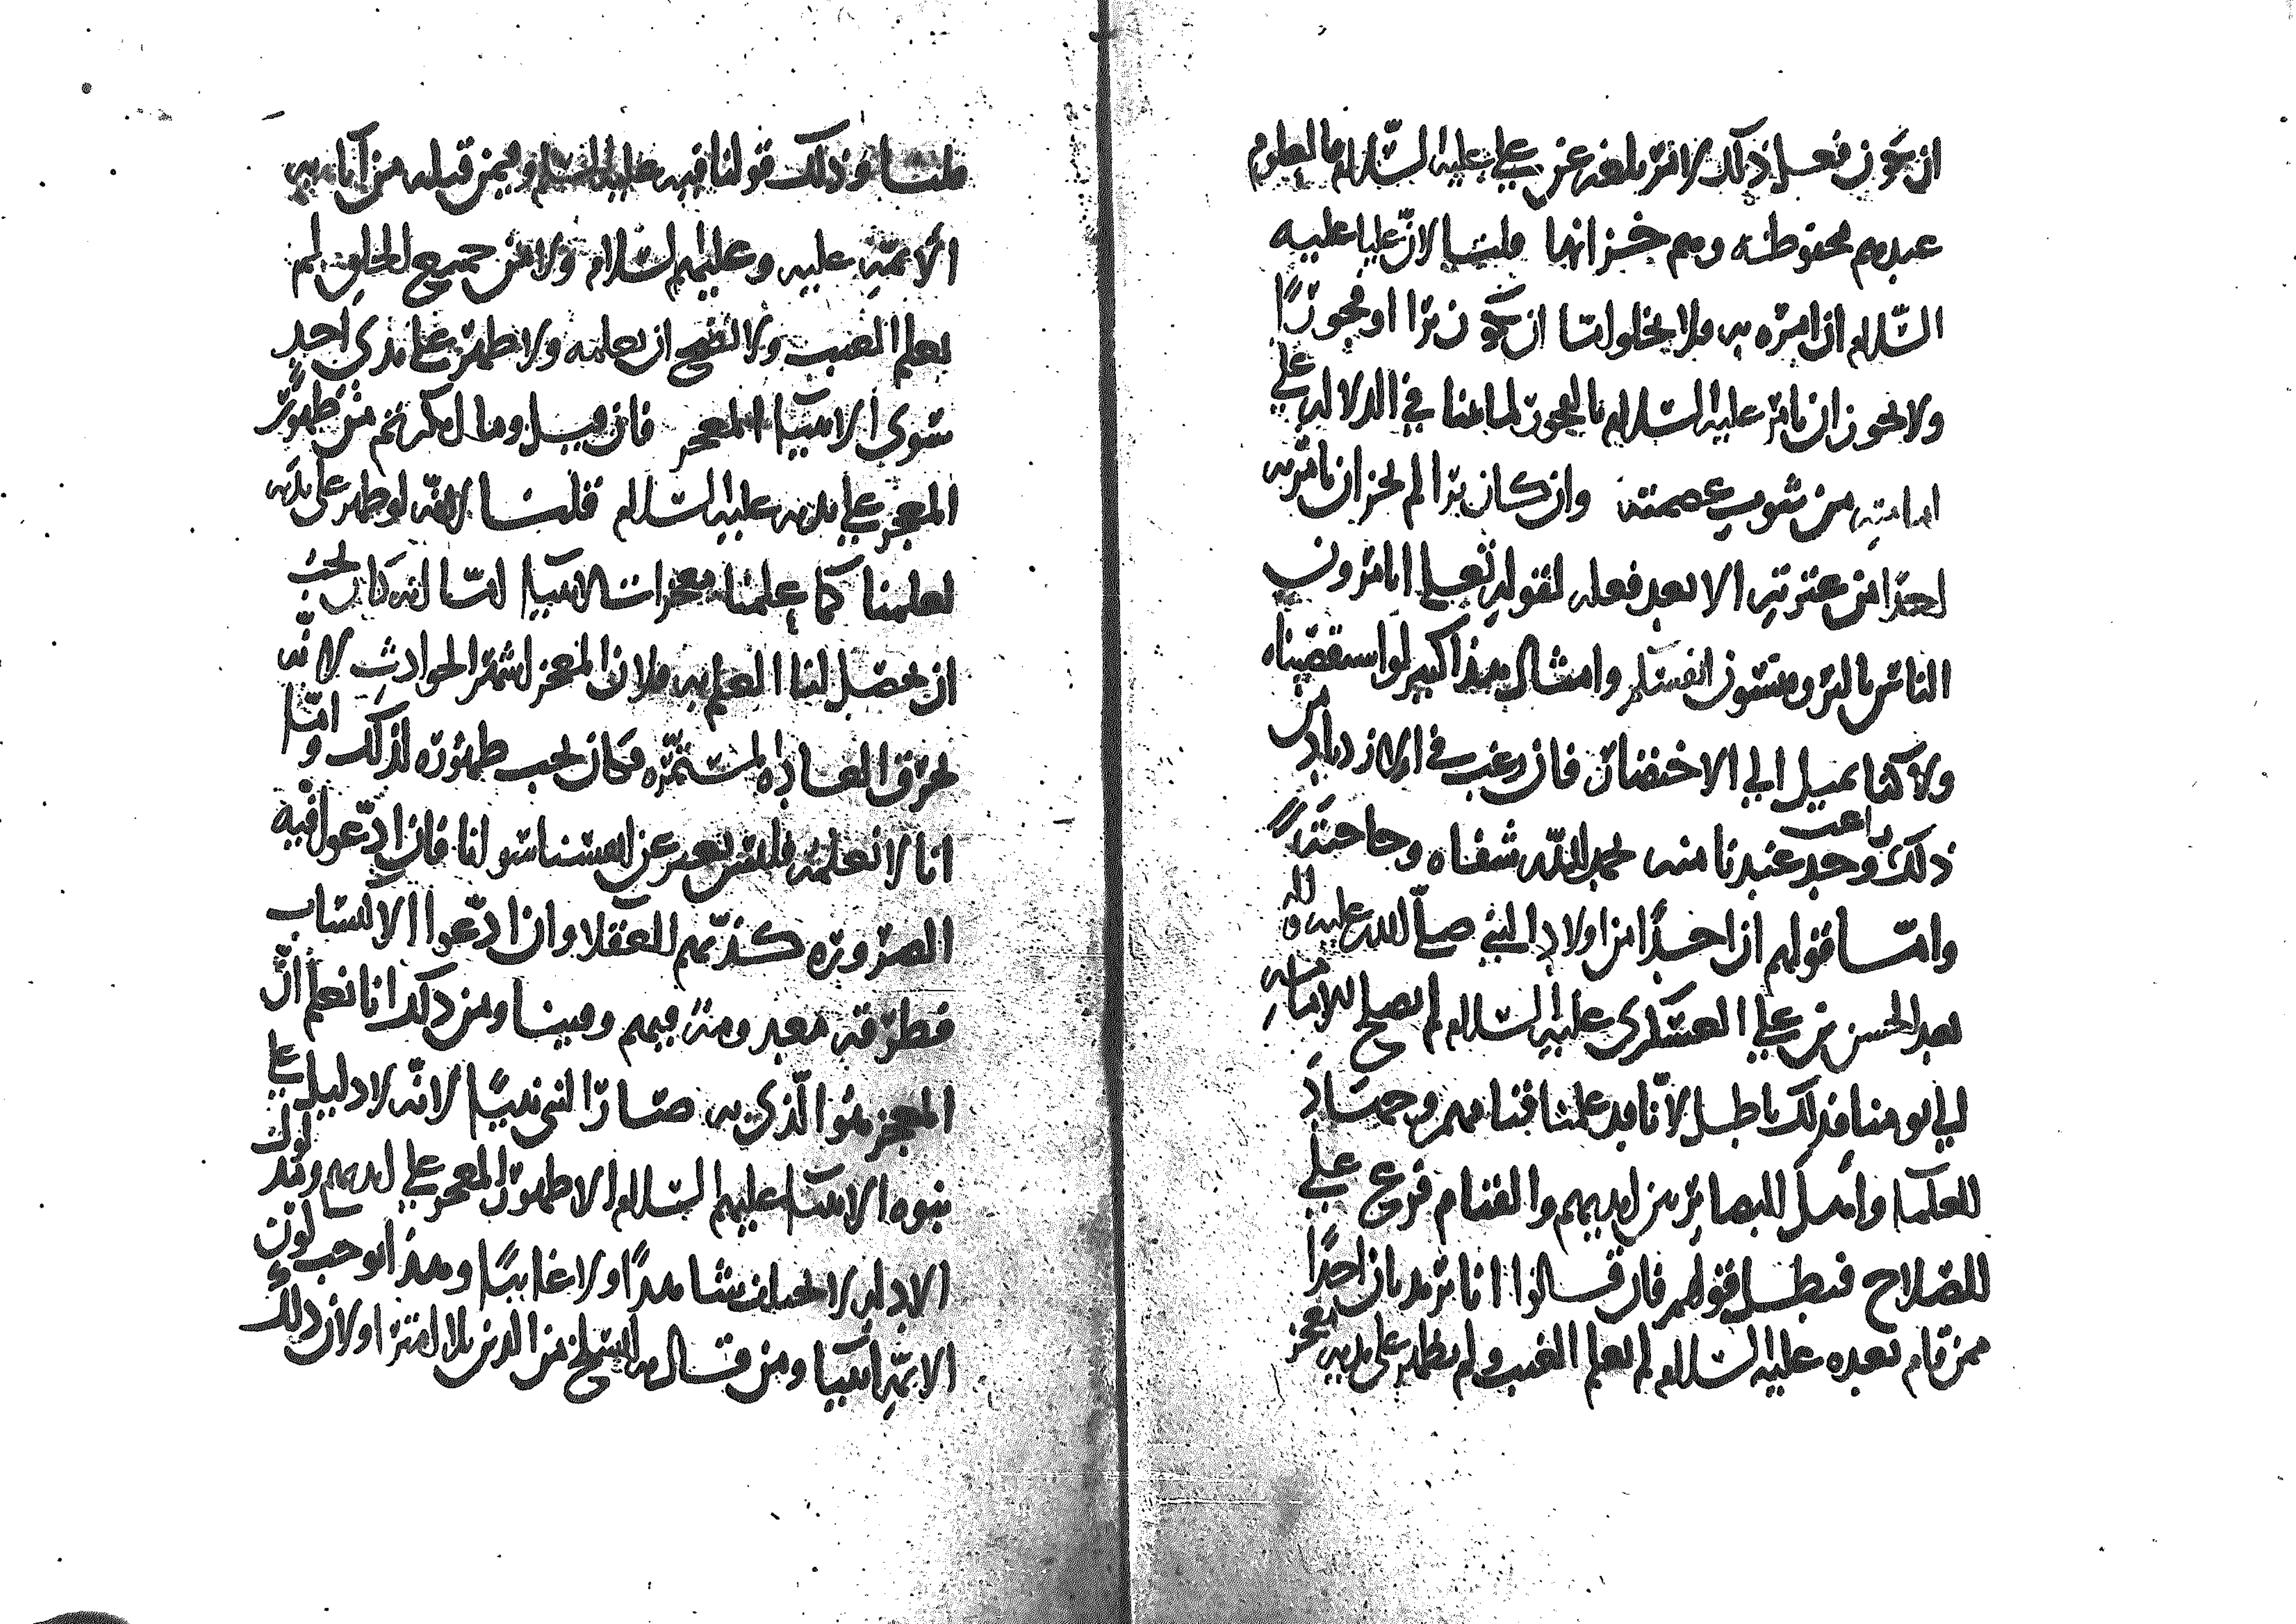 ان يكون فعل ذلك لامر بلغه عن علي عليه السلام فالعلوم
عندهم محفوظه وهم خزانها قلنا لان عليا عليه
السلام ان امره به فلا يخلو اما ان يكون برا او فجورًا
ولا يجوز ان يامر عليه السلام بالفجور لما قلنا في الدلاله على
امامته من ثبوت عصمته وان كان برا لم يجز ان يامر به
احدًا من عترته الا بعد فعله لقوله تعلى اتامرون
الناس بالبر وتنسون انفسكم وامثال هذا كثير لو استقصيناه
ولاكنا نميل الى الاختصار فان رغب في الازدياد من
ذلك راغب وجد عندنا منه بحمد الله شفاه وحاجته
واما قولهم ان احدًا من اولاد النبي صلى الله عليه واله
بعد الحسن بن علي العسكري عليه السلام لم يصلح للامامه
الى يومنا فذلك باطل لانا قد علمنا قيامهم وجهاد
العلما واهل البصائر بين ايديهم والقيام فرع على
الصلاح فبطل قولهم فان قالوا انا نريد بان احدًا
ممن قام بعده عليه السلام لم يعلم الغيب ولم يظهر على يديه معجز
قلنا وذلك قولنا فيه عليه السلام وفيمن قبله من آبائه
الائمه عليه وعليهم السلام ولانهم من جميع الخلق لم
يعلم الغيب ولا يصح ان يعلمه ولا يظهر على يدي احد
سوى الانبيا المعجز فان قيل وما انكرتم من ظهور
المعجز على يديه عليه السلام قلنا لانه لو ظهر على يديه
لعلمنا كما علمنا معجزات الانبيا لما انه كان يجب
ان يحصل لنا العلم به فلان المعجز اشهر الحوادث لانه
يخرق العاده المستمره فكان يجب ظهوره لذلك واما
انا لا نعلمه
الضروره كذبهم العقلا وان ادعوا الاكتساب
فطرقه معدومه فيهم وفينا ومن ذلك انا نعلم ان
المعجز هو الذي به صار النبي نبيًا لانه لا دليل على
نبوه الانبيا عليهم السلام الا ظهور المعجز على ايديهم وكون
الادله لا تختلف شاهدًا ولا غايبًا وهذا يوجب كون
الائمه انبيا ومن قال به انسلخ من الدين بلا امترا ولان ذلك